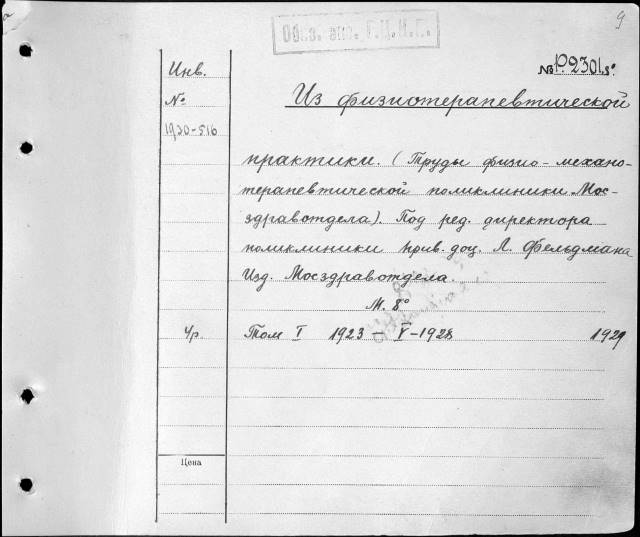 9
Обяз. экз. Г.Ц.К.П.
№ Р2301 8°
Инв.
№
1930-516
Из физиотерапевтической
практики. (Труды физио-механо-
терапевтической поликлиники Мос-
здравотдела). Под ред. директора
поликлиники прив. доц. Л. Фельдмана
Изд. Мосздравотдела.
М. 8°
Чр. Том I 1923 – V – 1928 1929
Цена